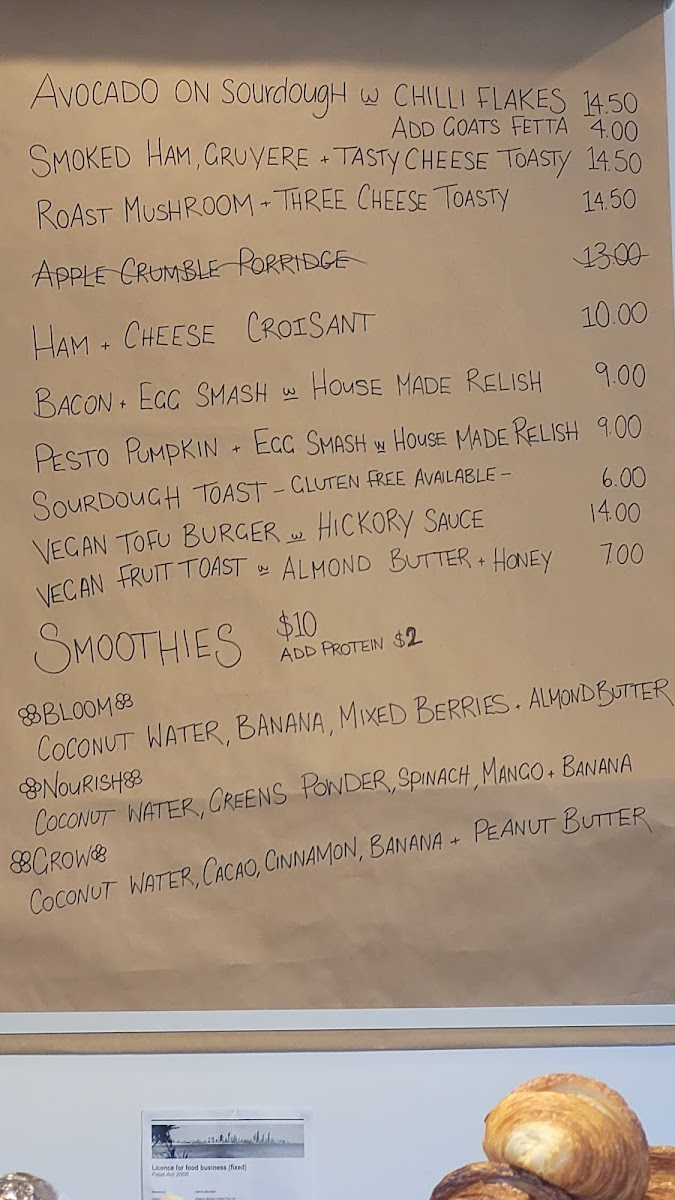 AVOCADO ON SOURDOUGH w CHILLI FLAKES 14.50
ADD GOATS FETTA 4.00
SMOKED HAM, GRUYERE + TASTY CHEESE TOASTY 14.50
ROAST MUSHROOM + THREE CHEESE TOASTY 14.50
APPLE CRUMBLE PORRIDGE 13.00
HAM + CHEESE CROISANT 10.00
BACON + EGG SMASH w HOUSE MADE RELISH 9.00
PESTO PUMPKIN + EGG SMASH w HOUSE MADE RELISH 9.00
SOURDOUGH TOAST - GLUTEN FREE AVAILABLE - 6.00
VEGAN TOFU BURGER w HICKORY SAUCE 14.00
VEGAN FRUIT TOAST w ALMOND BUTTER + HONEY 7.00
SMOOTHIES $10
ADD PROTEIN $2
BLOOM
COCONUT WATER, BANANA, MIXED BERRIES + ALMOND BUTTER
NOURISH
COCONUT WATER, GREENS POWDER, SPINACH, MANGO + BANANA
GROW
COCONUT WATER, CACAO, CINNAMON, BANANA + PEANUT BUTTER
Licence for food business (fixed)
Food Act 2006